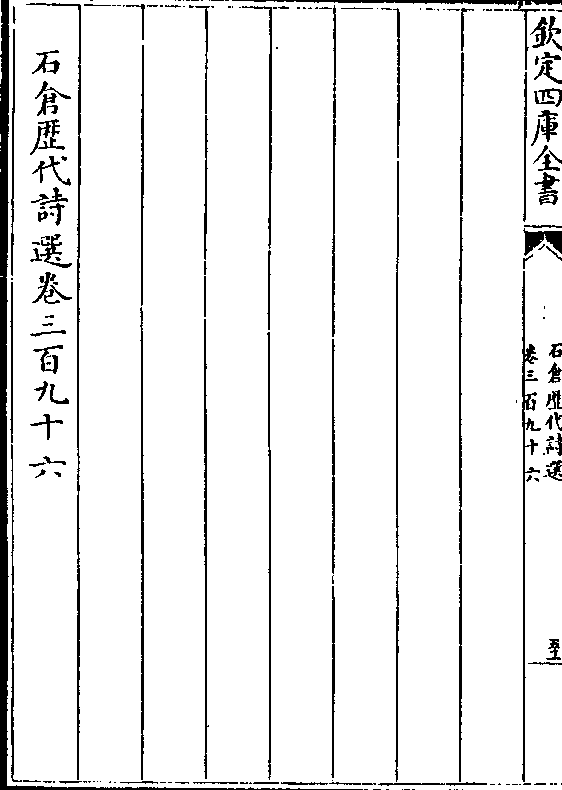 欽定四庫全書
石倉歷代詩選
卷三百九十六
石倉歷代詩選卷三百九十六